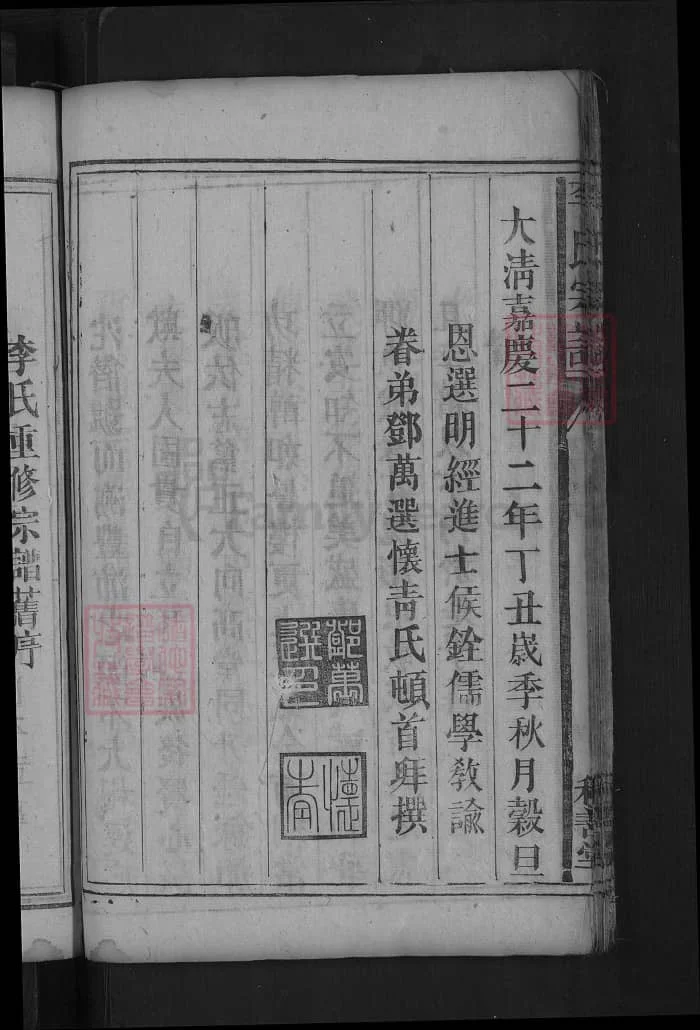 李氏宗譜
大清嘉慶二十二年丁丑歲季秋月穀旦
恩選明經進士候銓儒學教諭
眷弟鄧萬選懷青氏頓首拜撰
鄧萬選印
懷青
李氏重修宗譜舊序